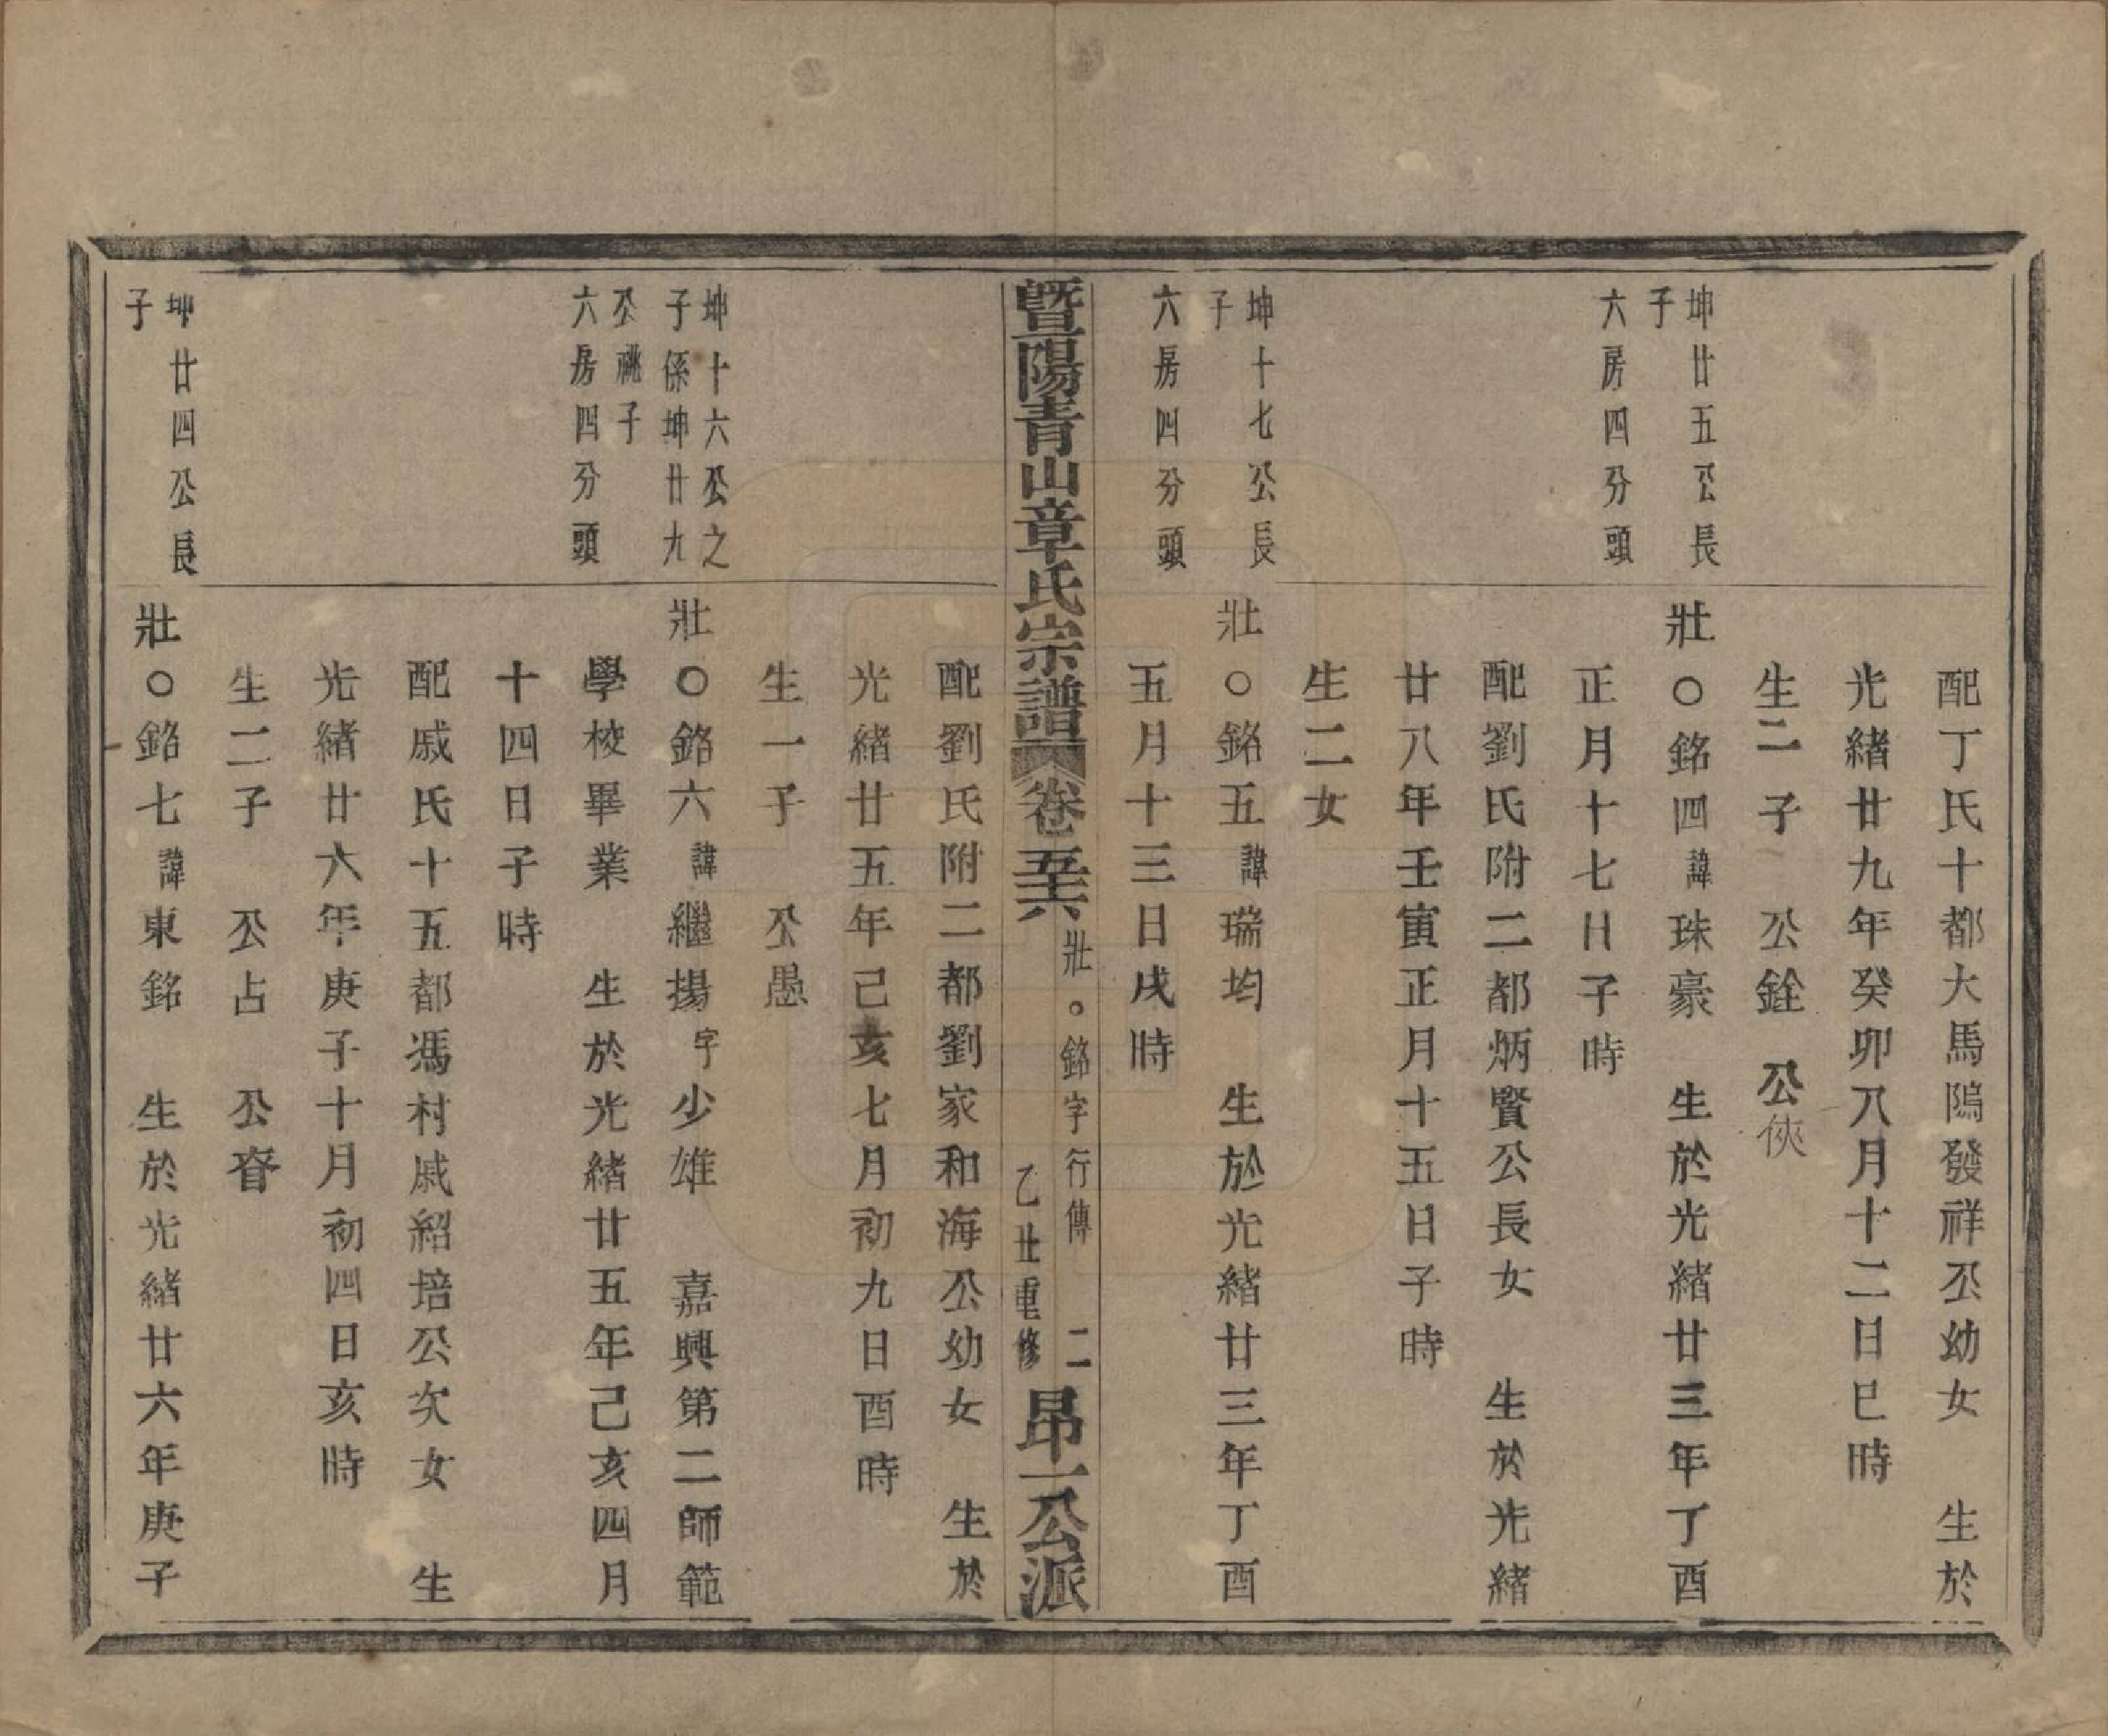 配丁氏十都大馬隝發祥公幼女　生於
光緒廿九年癸卯八月十二日巳時
生二子　公銓　公俠
坤廿五公長
子
六房四分頭
壯○銘四諱珠豪　生於光緒廿三年丁酉
正月十七日子時
配劉氏附二都炳賢公長女　生於光緒
廿八年壬寅正月十五日子時
生二女
坤十七公長
子
六房四分頭
壯○銘五諱瑞均　生於光緒廿三年丁酉
五月十三日戌時
暨陽青山章氏宗譜　卷五十六　壯。銘字行傳　二　乙丑重修　昂一公派
配劉氏附二都劉家和海公幼女　生於
光緒廿五年己亥七月初九日酉時
生一子　公愚
坤十六公之
子係坤廿九
公祧子
六房四分頭
壯○銘六諱繼揚字少雄　嘉興第二師範
學校畢業　生於光緒廿五年己亥四月
十四日子時
配戚氏十五都馮村戚紹培公次女　生
光緒廿六年庚子十月初四日亥時
生二子　公占　公睿
坤廿四公長
子
壯○銘七諱東銘　生於光緒廿六年庚子